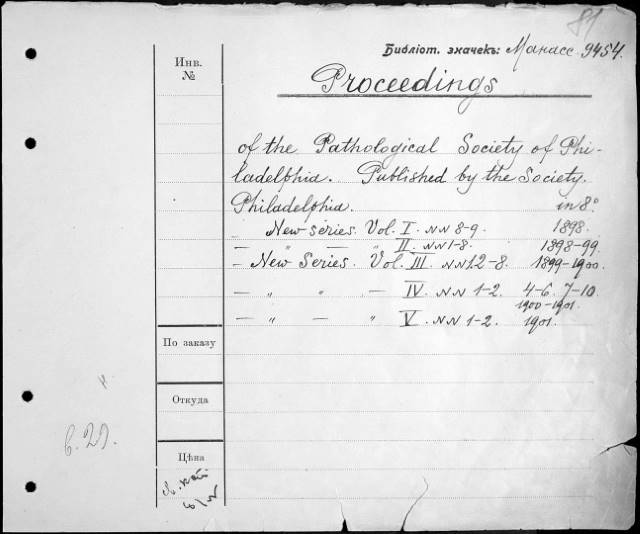 81
Библіот. значекъ: Манасс. 9454.
Инв.
№
Proceedings
of the Pathological Society of Phi-
ladelphia. Published by the Society.
Philadelphia. in 8°
„ New series. Vol. I. NN 8-9. 1898.
— „ — „ II. NN 1-8. 1898-99.
— New Series. Vol. III. NN 1.2-8. 1899-1900.
— „ „ — IV. NN 1-2. 4-6. 7-10.
1900-1901.
— „ — „ V. NN 1-2. 1901.
По заказу
Откуда
Цѣна